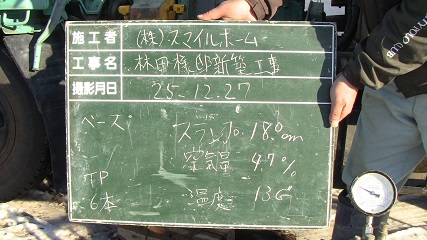 施工者 (株)スマイルホーム
工事名 林田様邸新築工事
撮影月日 25.12.27
ベース スランプ 18.0cm
空気量 4.7%
TP 温度 13℃
6本